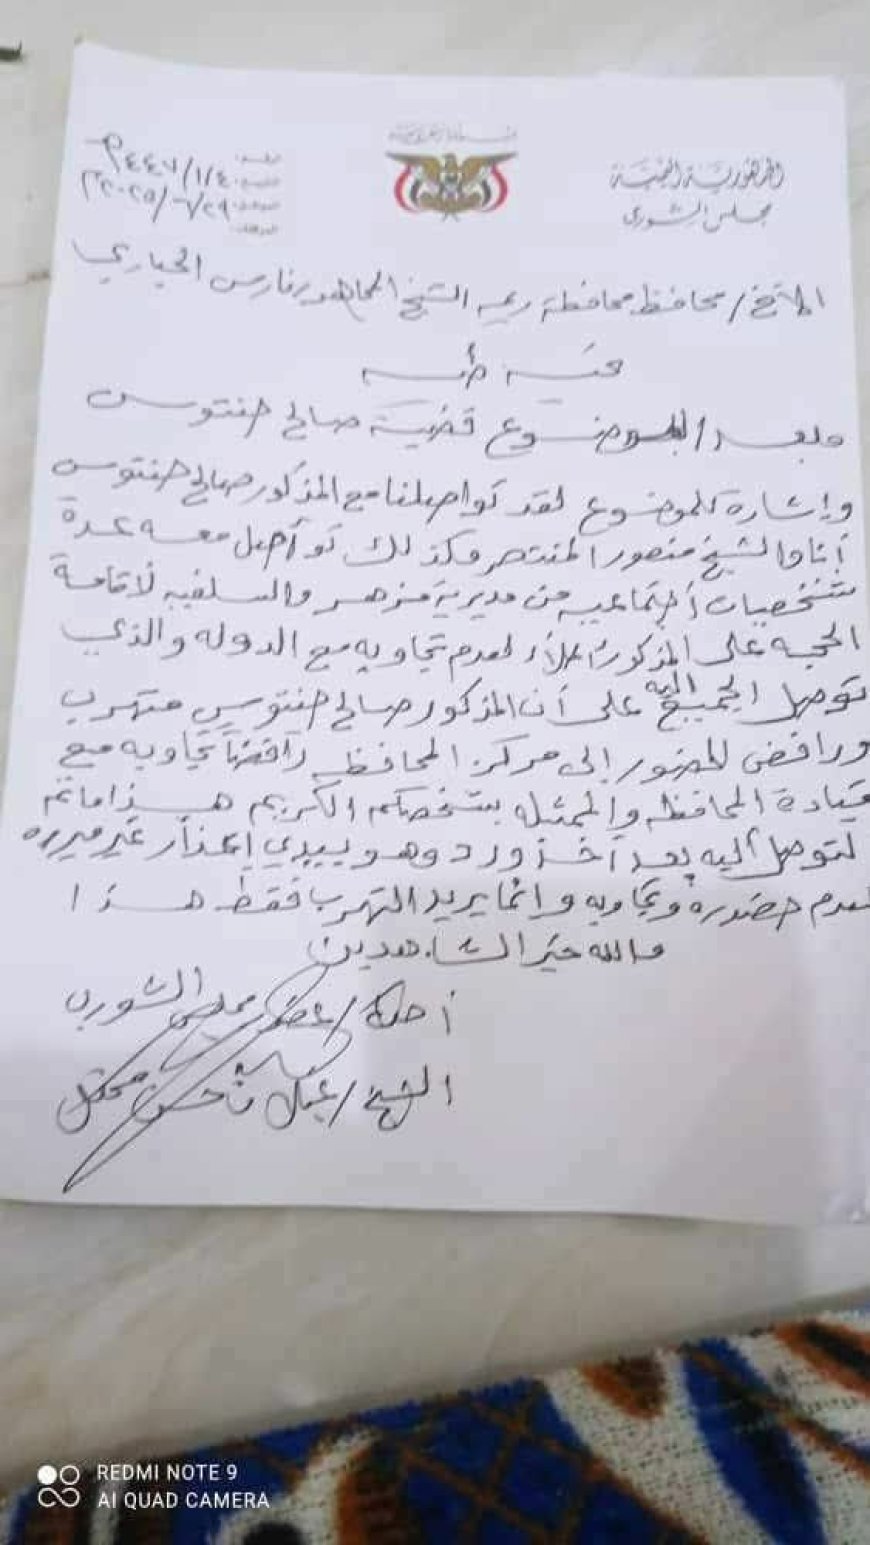 الجمهورية اليمنية
مجلس الشورى
١٤٤٧/١/٤هـ
٢٠٢٥/٦/٢٩م
الأخ/ محافظ محافظة ريمه الشيخ المجاهد فارس الحباري
تحيه طيبه
وبعد/ الموضوع قضية صالح حنتوس
وإشارة للموضوع لقد تواصلنا مع المذكور صالح حنتوس
أنا والشيخ منصور المنتصر وكذلك تواصل معه عدة
شخصيات إجتماعيه من مديرية مزهر والسلفيه لاقامة
الحجه على المذكور لعدم تجاوبه مع الدوله والذي
توصل الجميع اليه على أن المذكور صالح حنتوس متهرب
ورافض للحضور إلى مركز المحافظه رافضاً تجاوبه مع
قيادة المحافظه والممثله بشخصكم الكريم هذا ماتم
لتوصل اليه بعد أخذ ورد وهو يبدي إعذار غير مبرره
لعدم حضوره وتجاوبه وانما يريد التهرب فقط هذا
والله خير الشاهدين
أخوكم/ عضو مجلس الشورى
الشيخ/ محسن
REDMI NOTE 9
AI QUAD CAMERA